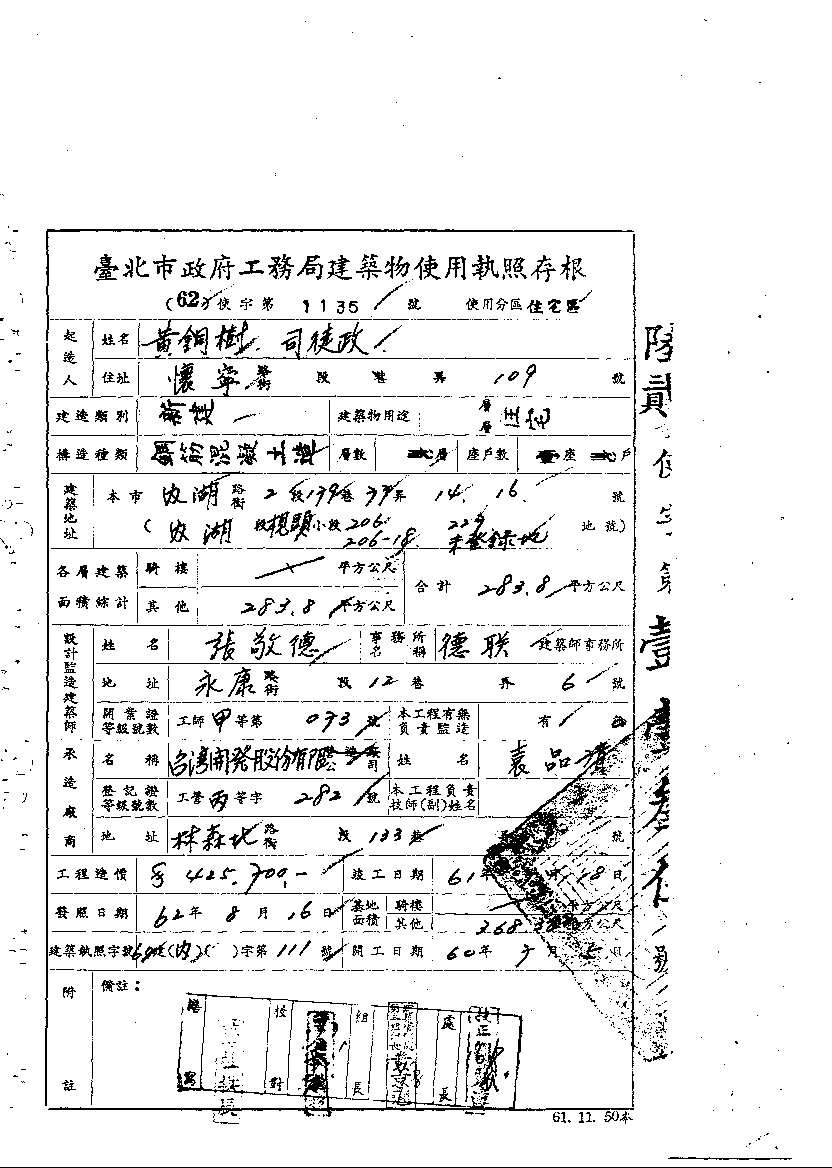 臺北市政府工務局建築物使用執照存根
(62)使字第 1135 號 使用分區 住宅區
起造人 姓名 黃銅樹. 司徒政
住址 懷寧 路街 段 巷 弄 109 號
建造類別 建築物用途 層層 住宅
構造種類 層數 層 座戶數 座 戶
建築地址 本市 內湖 路街 2 段 139 巷 39 弄 14. 16. 號
(內湖 段 視頭 小段 206. 229 地號)
206-18 未登錄地
各層建築面積綜計 騎樓 平方公尺 合計 283.8 平方公尺
其他 283.8 平方公尺
設計監造建築師 姓名 張敬德 事務所名稱 德联 建築師事務所
地址 永康 路街 段 12 巷 弄 6 號
開業證等級號數 工師 甲 等第 073 號 本工程有無負責監造 有
承造廠商 名稱 台湾開発股份有限公司 姓名 袁品
登記證等級號數 工營 丙 等字 282 號 本工程負責技師(副)姓名
地址 林森北 路街 段 133 巷 號
工程造價 425,700.- 竣工日期 61年 月 18日
發照日期 62年 8月 16日 基地面積 騎樓 平方公尺
其他 368. 平方公尺
建築執照字號 字第 111 號 開工日期 60年 月 5日
附註 備註:
繕寫 校對 組長 處長
61. 11. 50本
陸貳使字第壹壹參伍號